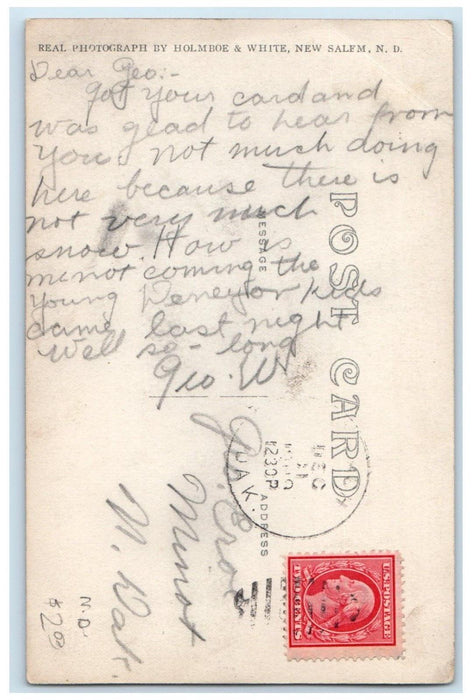 REAL PHOTOGRAPH BY HOLMBOE & WHITE, NEW SALEM, N. D.
Dear Geo:-
Got your card and
was glad to hear from
you. not much doing
here because there is
not very much
snow. How is
minot coming the
young kids
came last night
well so-long
Geo. W
POST CARD
MESSAGE
ADDRESS
DEC
21
1230P
DAK.
Minot
N. Dak.
N.D
$2.00
U.S. POSTAGE
2 CENTS 2